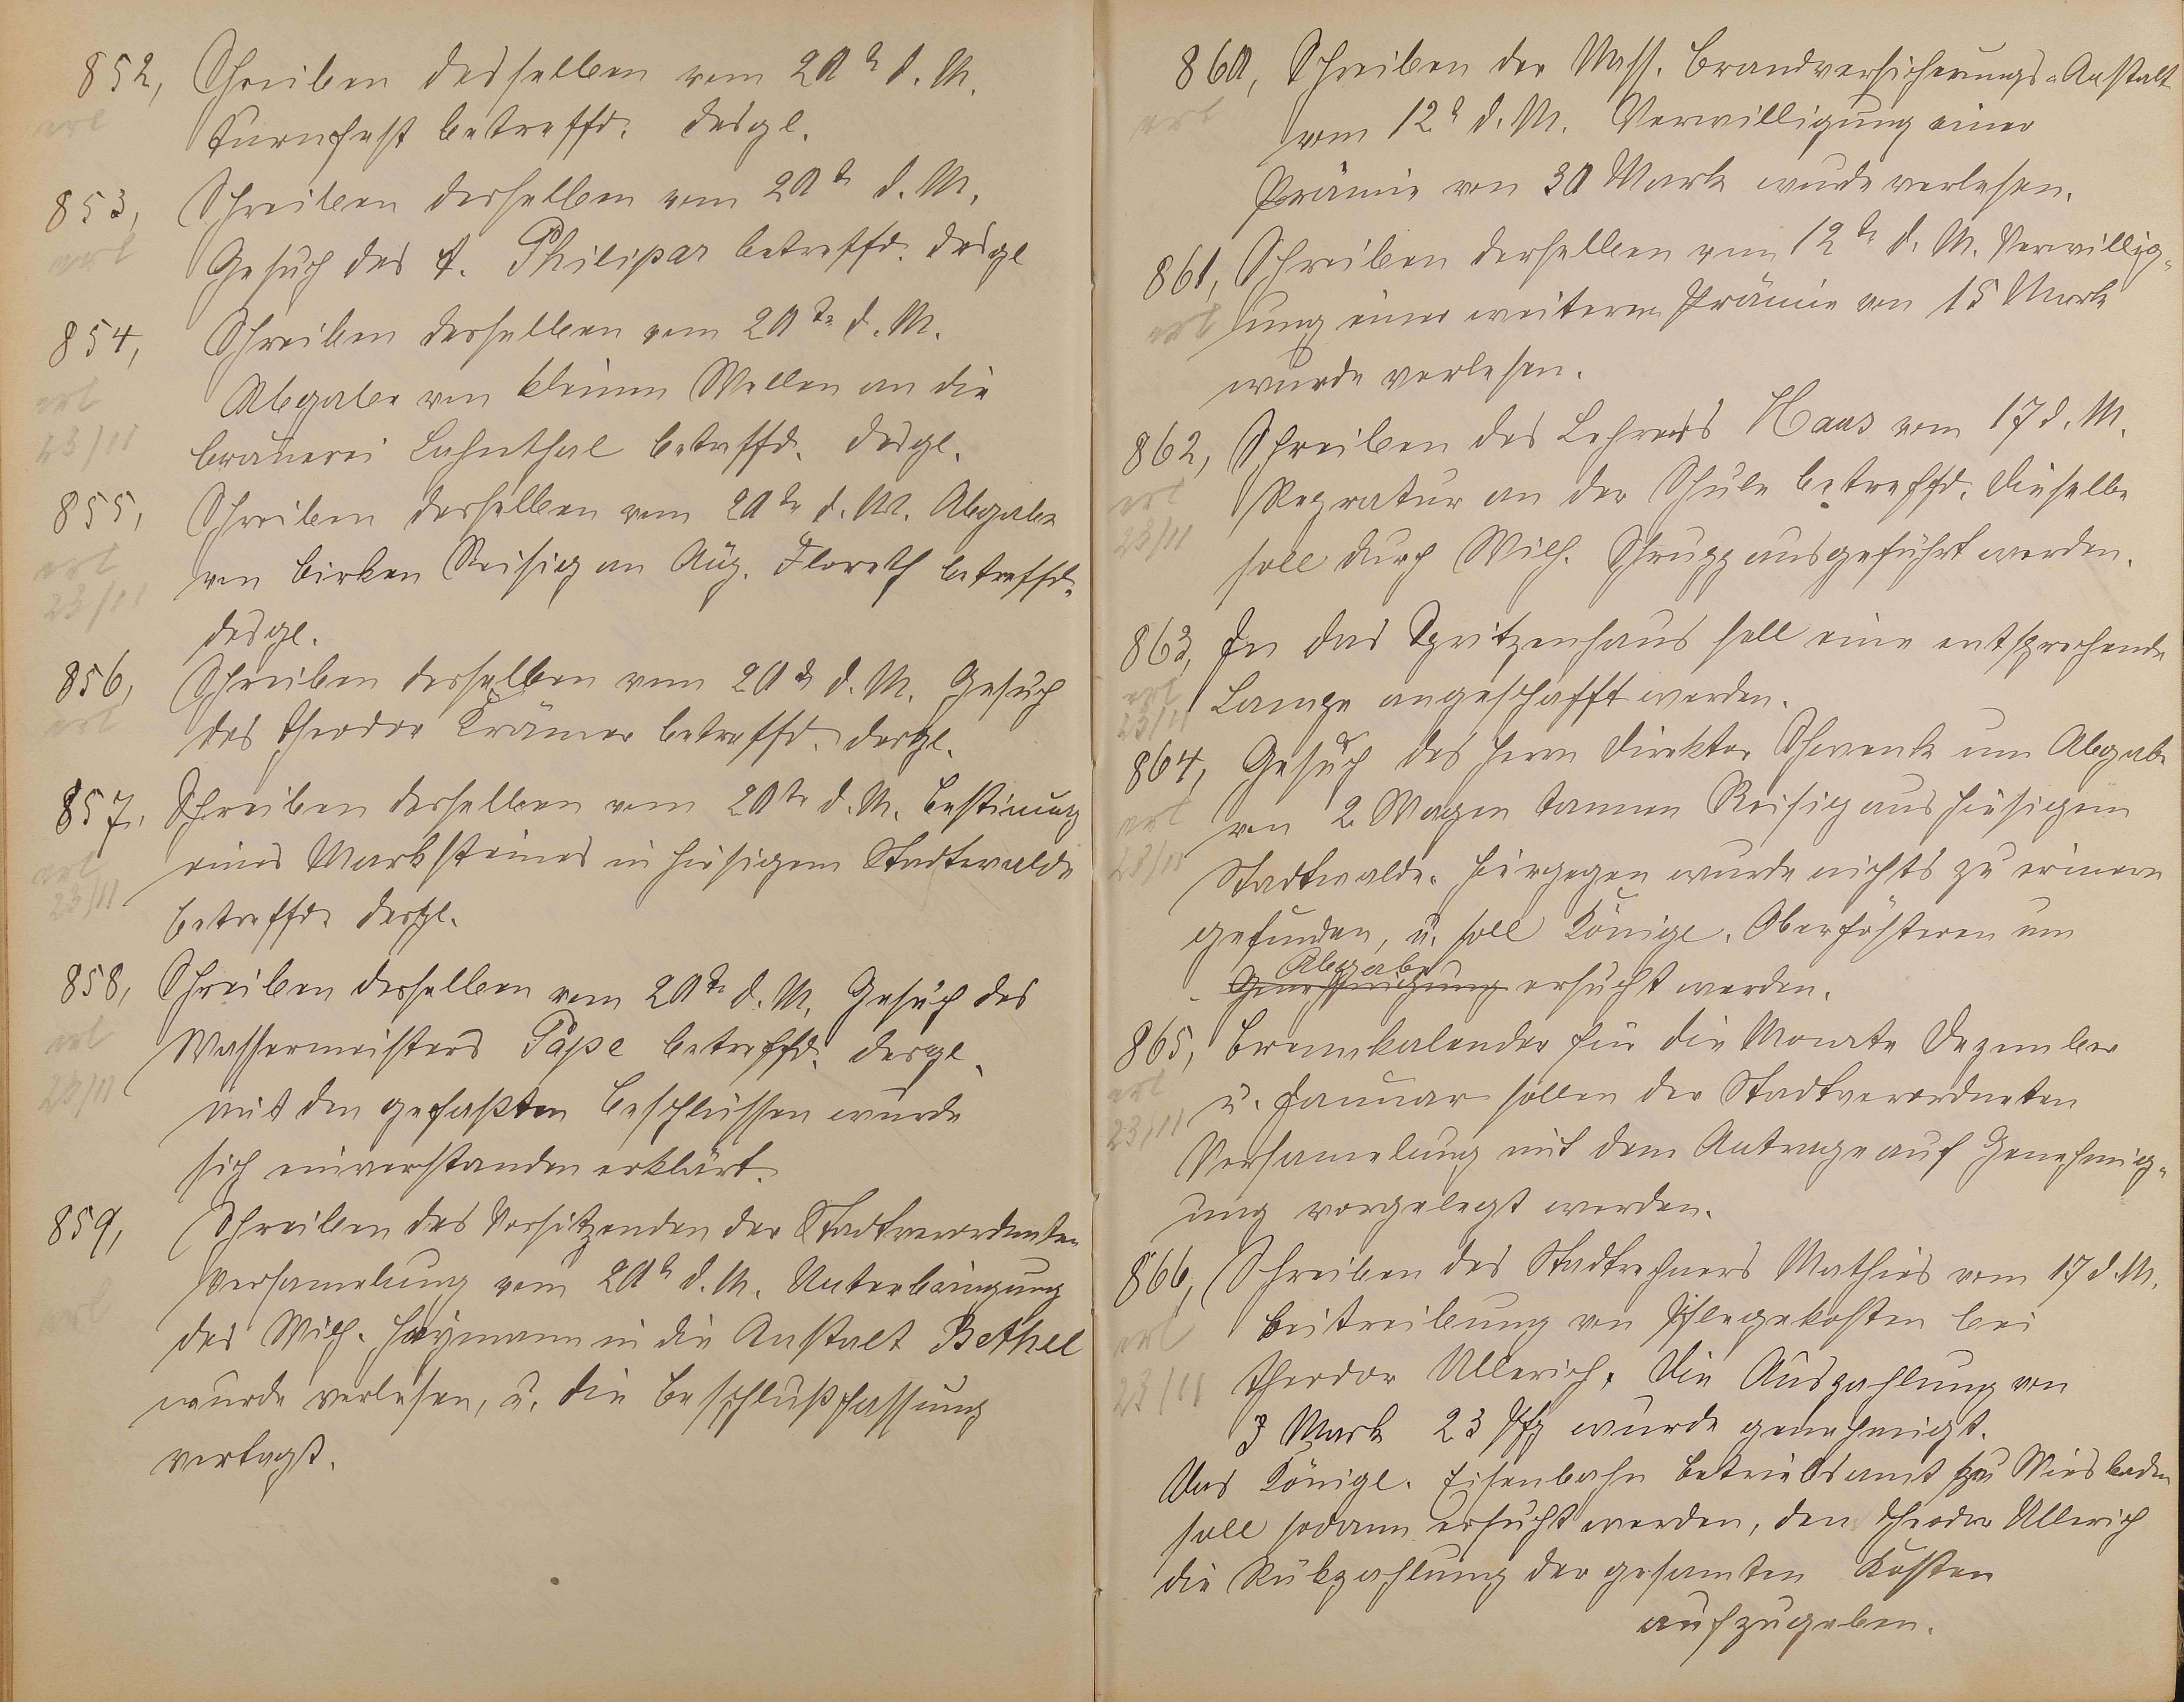 852, Schreiben desselben vom 20t d. M.
erl
Turnfest betreffd. desgl.
853, Schreiben desselben vom 20te d. M.
erl
Gesuch des A. Philipar betreffd. desgl
854, Schreiben desselben vom 20te d. M.
erl
Abgabe von kleinen Wellen an die
23/11
Brauerei Lahnthal betreffd. desgl.
855, Schreiben desselben vom 20te d. M. Abgabe
erl
von birken Reisig an Aug. Floreth betreffd.
23/11
desgl.
856, Schreiben desselben vom 20te d. M. Gesuch
erl
des Theodor Krämer betreffd. desgl.
857. Schreiben desselben vom 20te d. M. Bestimung
eines Marksteines in hiesigem Stadtwalde
erl
23/11
betreffd. desgl.
858, Schreiben desselben vom 20te d. M. Gesuch des
erl
Wassermeisters Pape betreffd. desgl.
23/11
mit den gefaßten Beschlüssen wurde
sich einverstanden erklärt.
859, Schreiben des Vorsitzenden der Stadtverordneten
Versamelung vom 20t d. M. Unterbringung
erl
des Wilh. Heymann in die Anstalt Bethel
wurde verlesen, u. die Beschlußfassung
vertagt.
860, Schreiben der Nass. Brandversicherungs-Anstalt
erl
vom 12t d. M. Verwilligung einer
Prämie von 30 Mark wurde verlesen.
861, Schreiben derselben vom 12te d. M. Verwillig-
erl
ung einer weiteren Prämie von 15 Mark
wurde verlesen.
862, Schreiben des Lehrers Haas vom 17 d. M.
erl
Repratur an der Schule betreffd. dieselbe
23/11
soll durch Wilh. Schrupp ausgeführt werden.
863, In das Spritzenhaus soll eine entsprechende
erl
Lampe angeschafft werden.
23/11
864, Gesuch des Herrn Direktor Schwenk um Abgabe
erl
von 2 Wagen tannen Reisig aus hiesigem
23/11
Stadtwalde. Hiergegen wurde nichts zu erinnern
gefunden, u. soll Königl. Oberförsteren um
Abgabe
Genehmigung ersucht werden.
865, Brennkalender für die Monate Dezember
erl
u. Januar sollen der Stadtverordneten
23/11
Versamelung mit dem Antrage auf Genehmig-
ung vorgelegt werden.
866, Schreiben des Stadtrechners Mathies vom 17 d. M.
erl
Beitreibung von Pflegekosten bei
23/11
Theodor Ullerich. Die Auszahlung von
3 Mark 23 Pfg wurde genehmigt.
Das Königl. Eisenbahn Betriebsamt zu Wiesbaden
soll sodann ersucht werden, den Theodor Ullerich
die Rükzahlung der gesamten Kosten
aufzugeben.